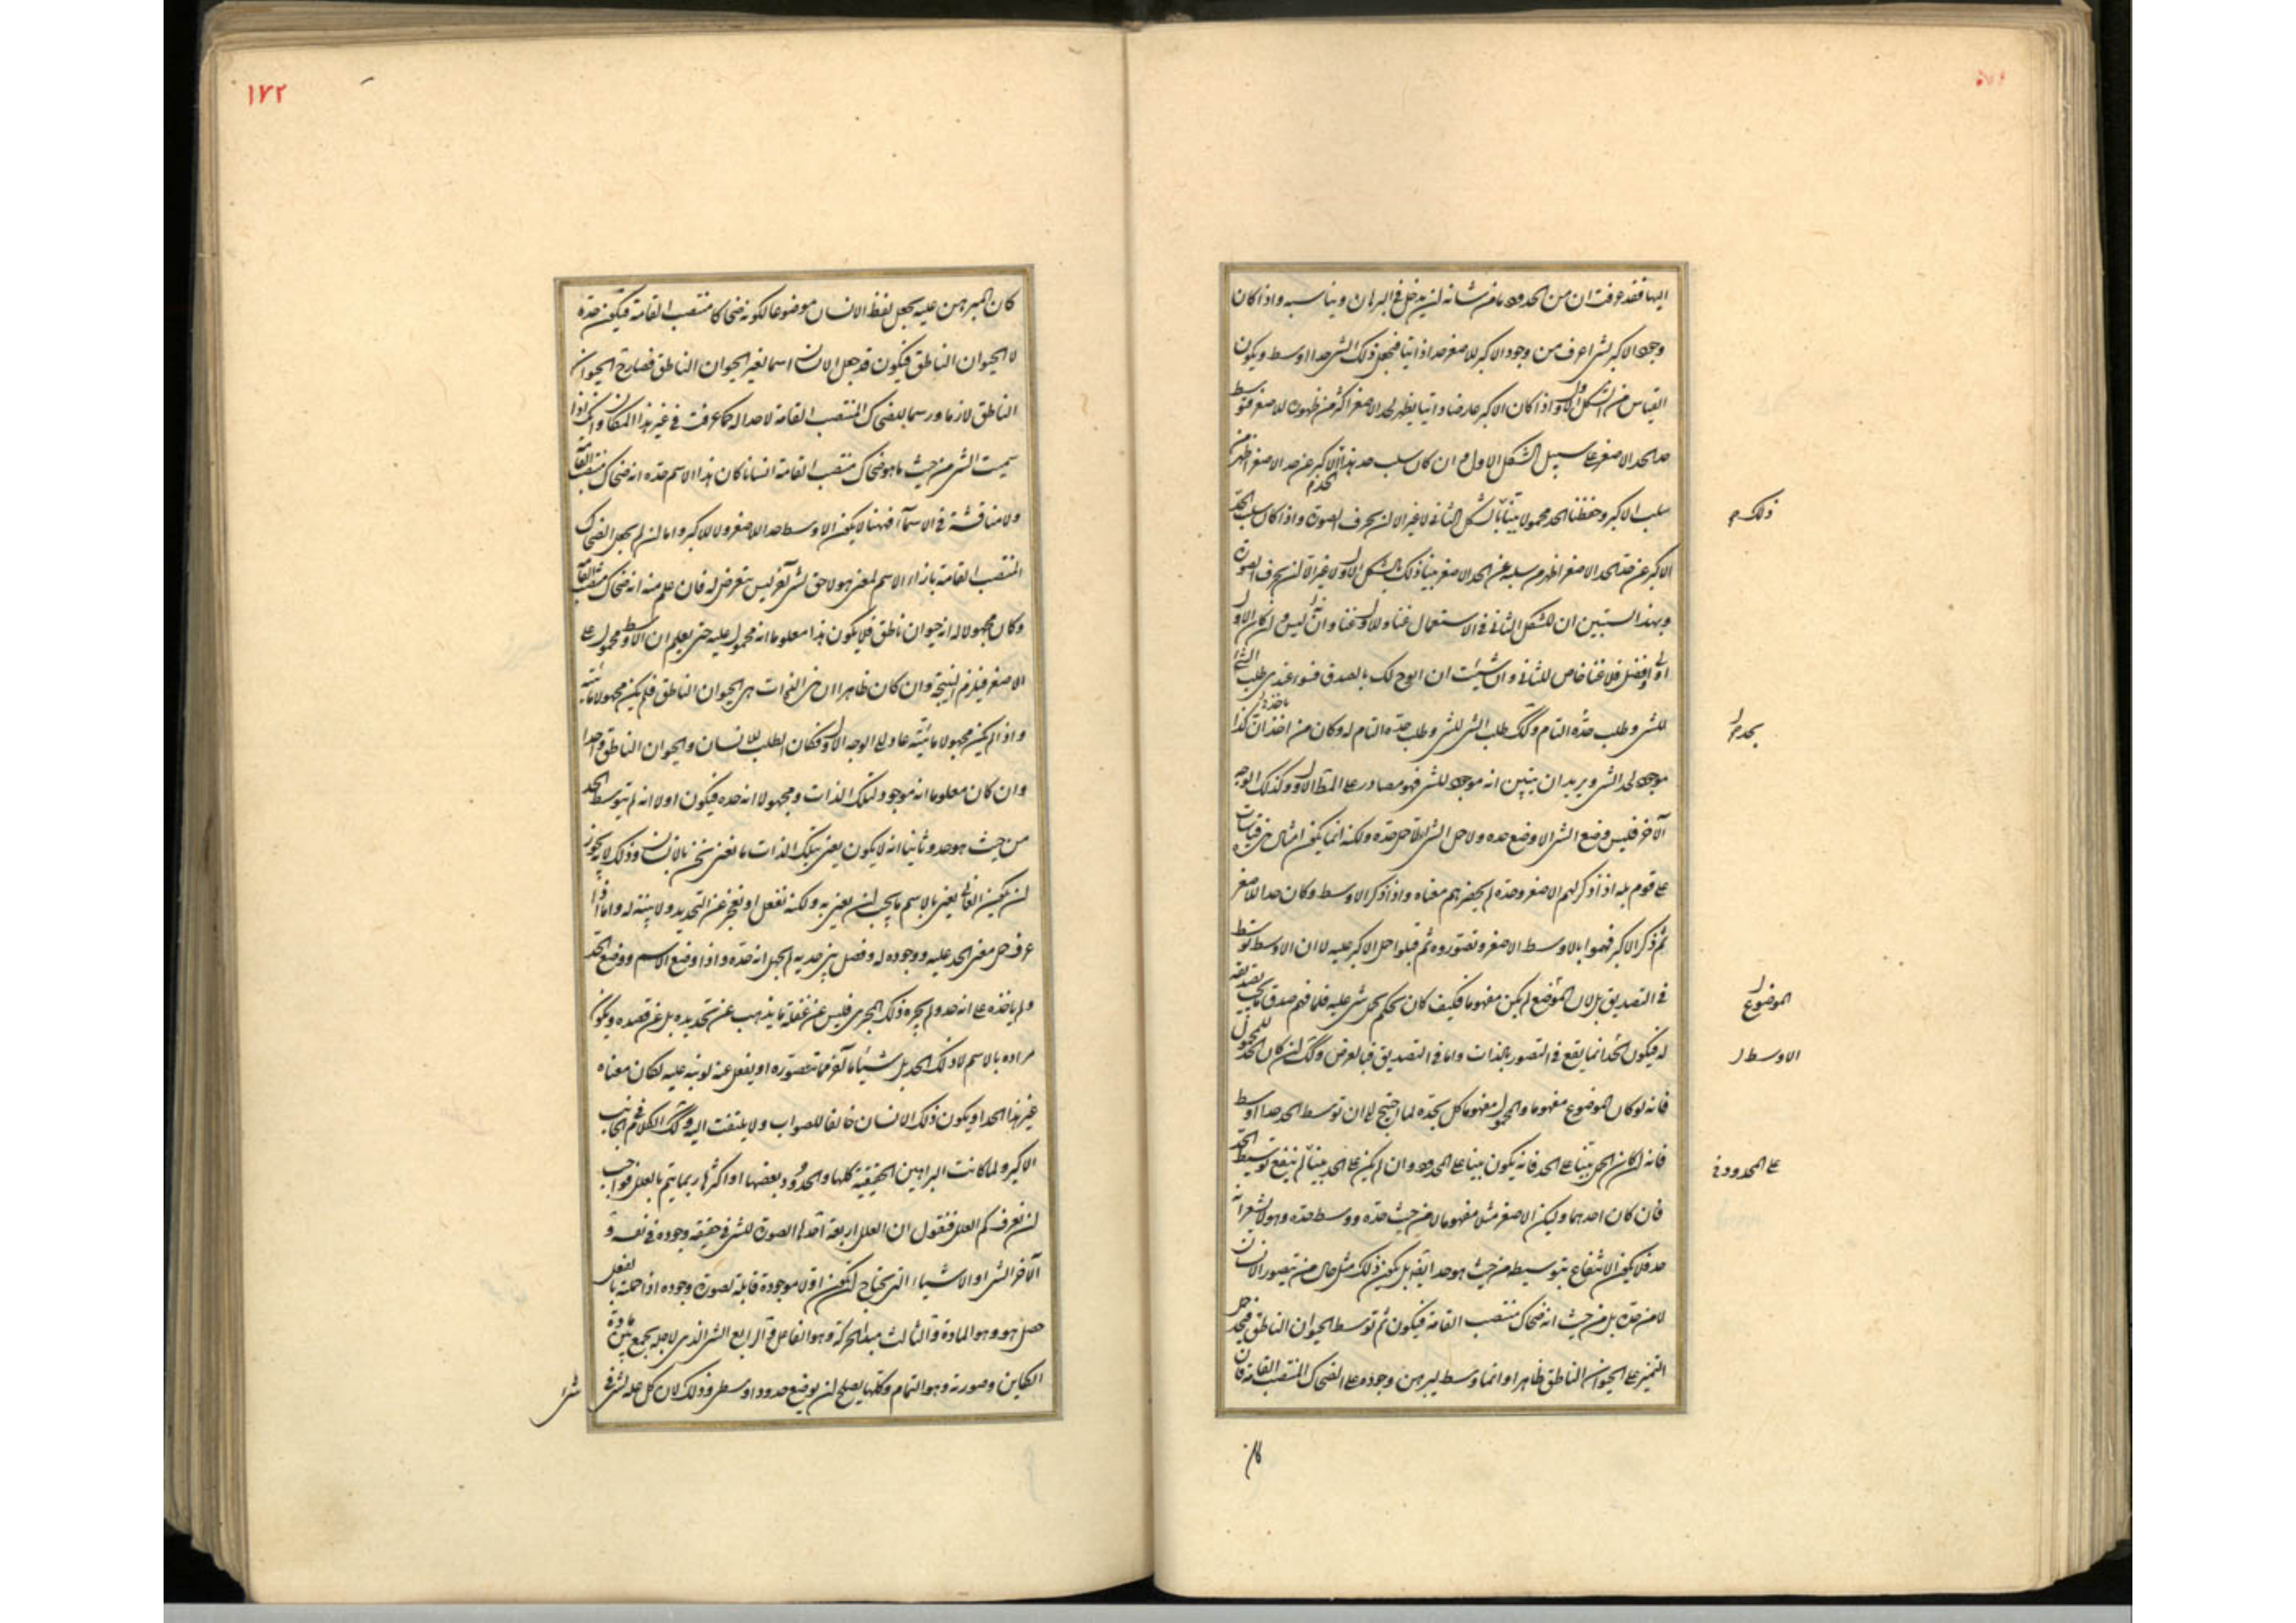 اليها فقد عرفت ان من الحدود ما من شانه ان يدخل في البرهان ويناسبه واذا كان
وجود الاكبر لشئ اعرف من وجود الاكبر للاصغر حدا ذاتيا فيجعل ذلك الشئ حدا اوسط ويكون
القياس من الشكل الاول واذا كان الاكبر عارضا ذاتيا يظهر لحد الاصغر اكثر من ظهوره للاصغر فتوسط
حد الحد الاصغر على سبيل الشكل الاول وان كان سلب حد هذا الاكبر عن حد الاصغر اظهر من
سلب الاكبر وحفظنا الحد محمولا بينا بالشكل الثاني لا غير الا ان يحرف الصورة واذا كان سلب الحد
ذلك
الاكبر عن حد الحد الاصغر اظهر من سلبه عن الحد الاصغر بينا ذلك بالشكل الاول لا غير الا ان يحرف الصورة
وبهذا استبين ان للشكل الثاني في الاستعمال غناء وللاول غناء وان ليس
اولى وافضل فلا غناء خاص للثاني وان شئت ان ابوح لك بالصدق فسواء عندي طلب الشئ
للشئ وطلب حده التام وكك طلب الشئ للشئ وطلب حده التام له وكان من اخذ ان كذا
بحد
موجود لحد الشئ ويريد ان يبين انه موجود للشئ فهو مصادر على المط الاول وكذلك الوجه
الآخر فليس وضع الشئ الا وضع حده ولا حمل الشئ الا حمل حده ولكنه انما يكون امثال هذه قياسات
على قوم بله اذا ذكر لهم الاصغر وحده لم يحضرهم معناه واذا ذكر الاوسط وكان حدا للاصغر
ثم ذكر الاكبر فهموا بالاوسط الاصغر وتصوروه ثم قبلوا حمل الاكبر عليه لا ان الاوسط توسط
في التصديق بل لان الموضع لم يكن مفهوما فكيف كان يحكم بحمل شئ عليه فلما فهم صدق بما يجب تصديقه
الموضوع
له فيكون الحد انما يقع في التصور بالذات واما في التصديق فبالعرض وكك ان كان الحد للمحمول
الاوسط
فانه لو كان الموضوع مفهوما والمحمول مفهوما كل بحده لما احتيج الى ان توسط الحد حدا اوسط
فانه ان كان الحمل بينا على الحد فانه يكون بينا على المحدود وان لم يكن على الحد بينا لم ينفع توسيط الحد
على المحدود
فان كان احدهما وليكن الاصغر مثلا مفهوما لا من حيث حده ووسط حده وهو لا يشعر انه
حد فلا يكون الانتفاع بتوسيطه من حيث هو حد ايضا بل يكون ذلك مثل حال من يتصور الانسان
لا من حده بل من حيث انه ضحاك منتصب القامة فيكون ثم توسط الحيوان الناطق فيجد حمل
التميز على الحيوان الناطق ظاهرا وانما وسط ليبرهن وجوده على الضحاك المنتصب القامة فان
كان
١٧٢
كان المبرهن عليه يجعل لفظ الانسان موضوعا لكونه ضحاكا منتصب القامة فيكون حده
لا الحيوان الناطق فيكون قد جعل الانسان اسما لغير الحيوان الناطق فصار ح الحيوان
الناطق لازما ورسما للضحاك المنتصب القامة لا حدا له كما عرفت في غير هذا المكان وانك اذا
سميت الشئ من حيث ما هو ضحاك منتصب القامة انسانا كان هذا الاسم حده انه ضحاك منتصب القامة
ولا مناقشة في الاسماء فههنا لا يكون الاوسط حدا للاصغر ولا للاكبر واما ان لم يجعل الضحاك
المنتصب القامة بازاء الاسم لمعنى هو لاحق لشئ آخر ليس يتعرض له فان علم منه انه ضحاك منتصب القامة
وكان مجهولا له انه حيوان ناطق فلا يكون هذا معلوما انه محمول عليه حتى يعلم ان الاوسط محمول على
الاصغر فيلزم النتيجة وان كان ظاهرا ان هذه الذات هي الحيوان الناطق فلم يكن مجهولا مائيته
واذا لم يكن مجهولا مائيته عاد الى الوجه الاول فكان الطلب للانسان والحيوان الناطق واحدا
وان كان معلوما انه موجود لتلك الذات ومجهولا انه حده فيكون اولا انه لم يتوسط الحد
من حيث هو حد وثانيا انه لا يكون يعنى بتلك الذات ما نعنى نحن بالانسان وذلك لانه يجوز
ان يكون القائل يعنى بالاسم ما يجب ان يعنى به ولكنه نغفل او نعجز عن التحديد ولا يتنبه له واما اذا
عرف حمل معنى الحد عليه ووجوده له وفصل بين حديه لم يجهل انه حده واذا وضع الاسم ووضع الحد
ولم ياخذه على انه حد ولم يجره ذلك المجرى فليس عن غفلة ما يذهب عن تحديده بل عن قصده ويكون
مراده بالاسم لا ذلك الحد بل شيئا ما آخر مما يتصوره او يغفل عنه لو نبه عليه لكان معناه
غير هذا الحد او يكون ذلك الانسان خالفا للصواب ولا يلتفت اليه وكك الكلام في جانب
الاكبر ولما كانت البراهين الحقيقية كلها والحدود بعضها او اكثرها ربما يتم بالعلل فواجب
ان نعرف كم العلل فنقول ان العلل اربعة احدها الصورة للشئ في حقيقة وجوده في نفسه و
الآخر الشئ او الاشياء التي يحتاج ان يكون اولا موجودة قابلة لصورة وجوده اذا حملته بالفعل
حصل هو وهو المادة والثالث مبدا الحركة وهو الفاعل والرابع الشئ الذي لاجله يجمع بين مادة
الكاين وصورته وهو التمام وكلها يصلح ان يوضع حدودا وسطى وذلك لان كل علة لشئ في